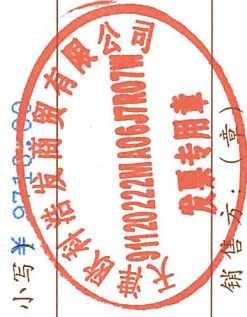 小写 ¥ 9718.00
天津欧科浩发商贸有限公司
91120222MA06J7R07W
发票专用章
销售方:(章)